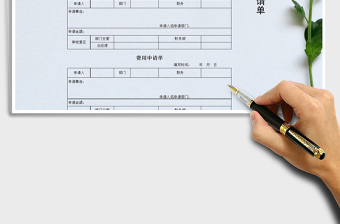 申请人 部门 职务
申请事由：
申请人员申请部门：
申请金额：
审核意见 部门主管 财务部
总经理
费用申请单
填写时间： 年 月 日
申请人 部门 职务
申请事由：
申请人员申请部门：
申请金额：
部门主管 财务部
请单